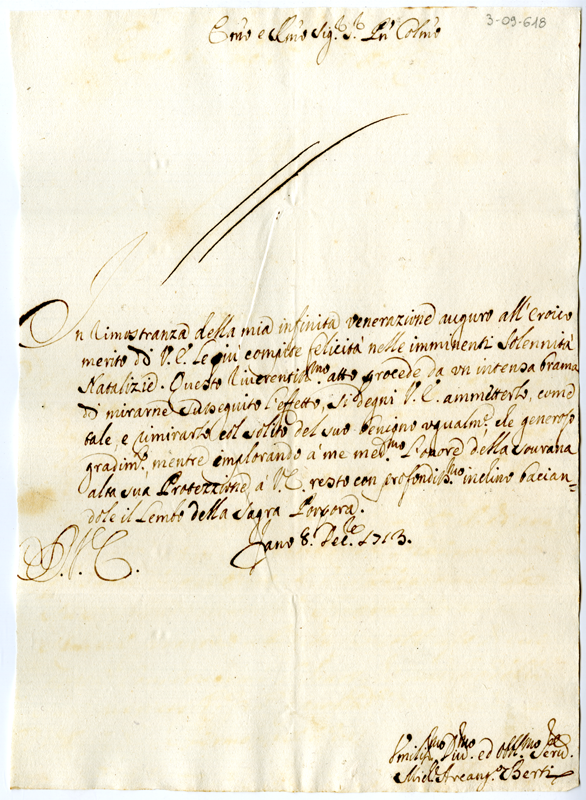 3-09-618
Emo e Rmo Sig.r S.r Pn̄ Colmo
In Rimostranza della mia infinita venerazione auguro all'eroico
merito di V. E. le più compite felicità nelle imminenti Solennità
Natalizie. Questo Riverentiss.mo atto procede da un intensa brama
di mirarne susseguito l'effetto, si degni V. E. ammetterlo, come
tale, e rimirarlo col solito del suo benigno ugualm.e che generoso
gradim.to, mentre implorando à me med.mo l'onore della sourana
alta sua Protezzione à V. E. resto con profondiss.mo inclino bacian=
dole il Lembo della Sagra Porpora.
D. V. E.
Fano 8. Dec.e 1713.
Umiliss.mo Div.mo ed Obl.mo Serv.re
Mich. Arcang.o Berti